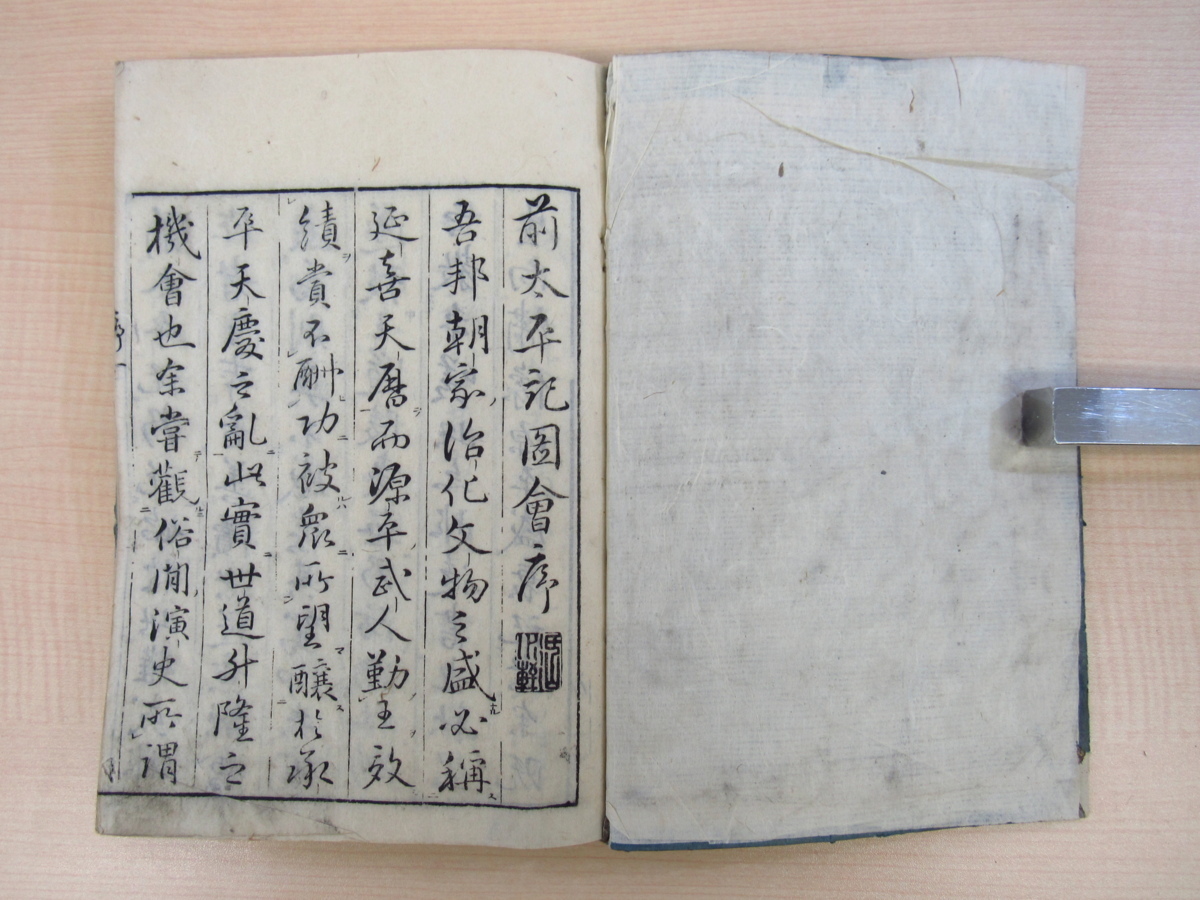 前太平記圖會序
吾邦朝家治化文物之盛必稱
延喜天曆而源平武人勤王效
績賞不酬功被衆所望釀於承
平天慶之亂此實世道升隆之
機會也余嘗觀俗間演史所謂